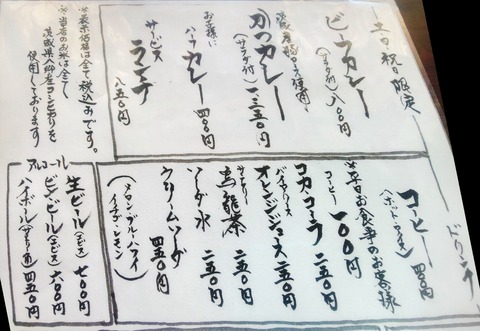 土日祝日限定
ビーフカレー
(サラダ付) 八〇〇円
茨城県産ロース使用
カツカレー
(サラダ付) 一三五〇円
お子様に
ハーフカレー 四〇〇円
サービス
ランチ
八五〇円
※表示価格は全て税込みです。
※当店のお米は全て
茨城県八郷産コシヒカリを
使用しております
ドリンク
コーヒー 四〇〇円
(ホット・アイス)
※平日お食事のお客様
コーヒー 一〇〇円
コカコーラ 二五〇円
バヤリース
オレンジジュース 二五〇円
烏龍茶 二五〇円
ソーダ水 二五〇円
クリームソーダ 四五〇円
(メロン・ブルーハワイ
イチゴ・レモン)
アルコール
生ビール(エビス) 七〇〇円
ビンビール(エビス) 六〇〇円
ハイボール 四五〇円